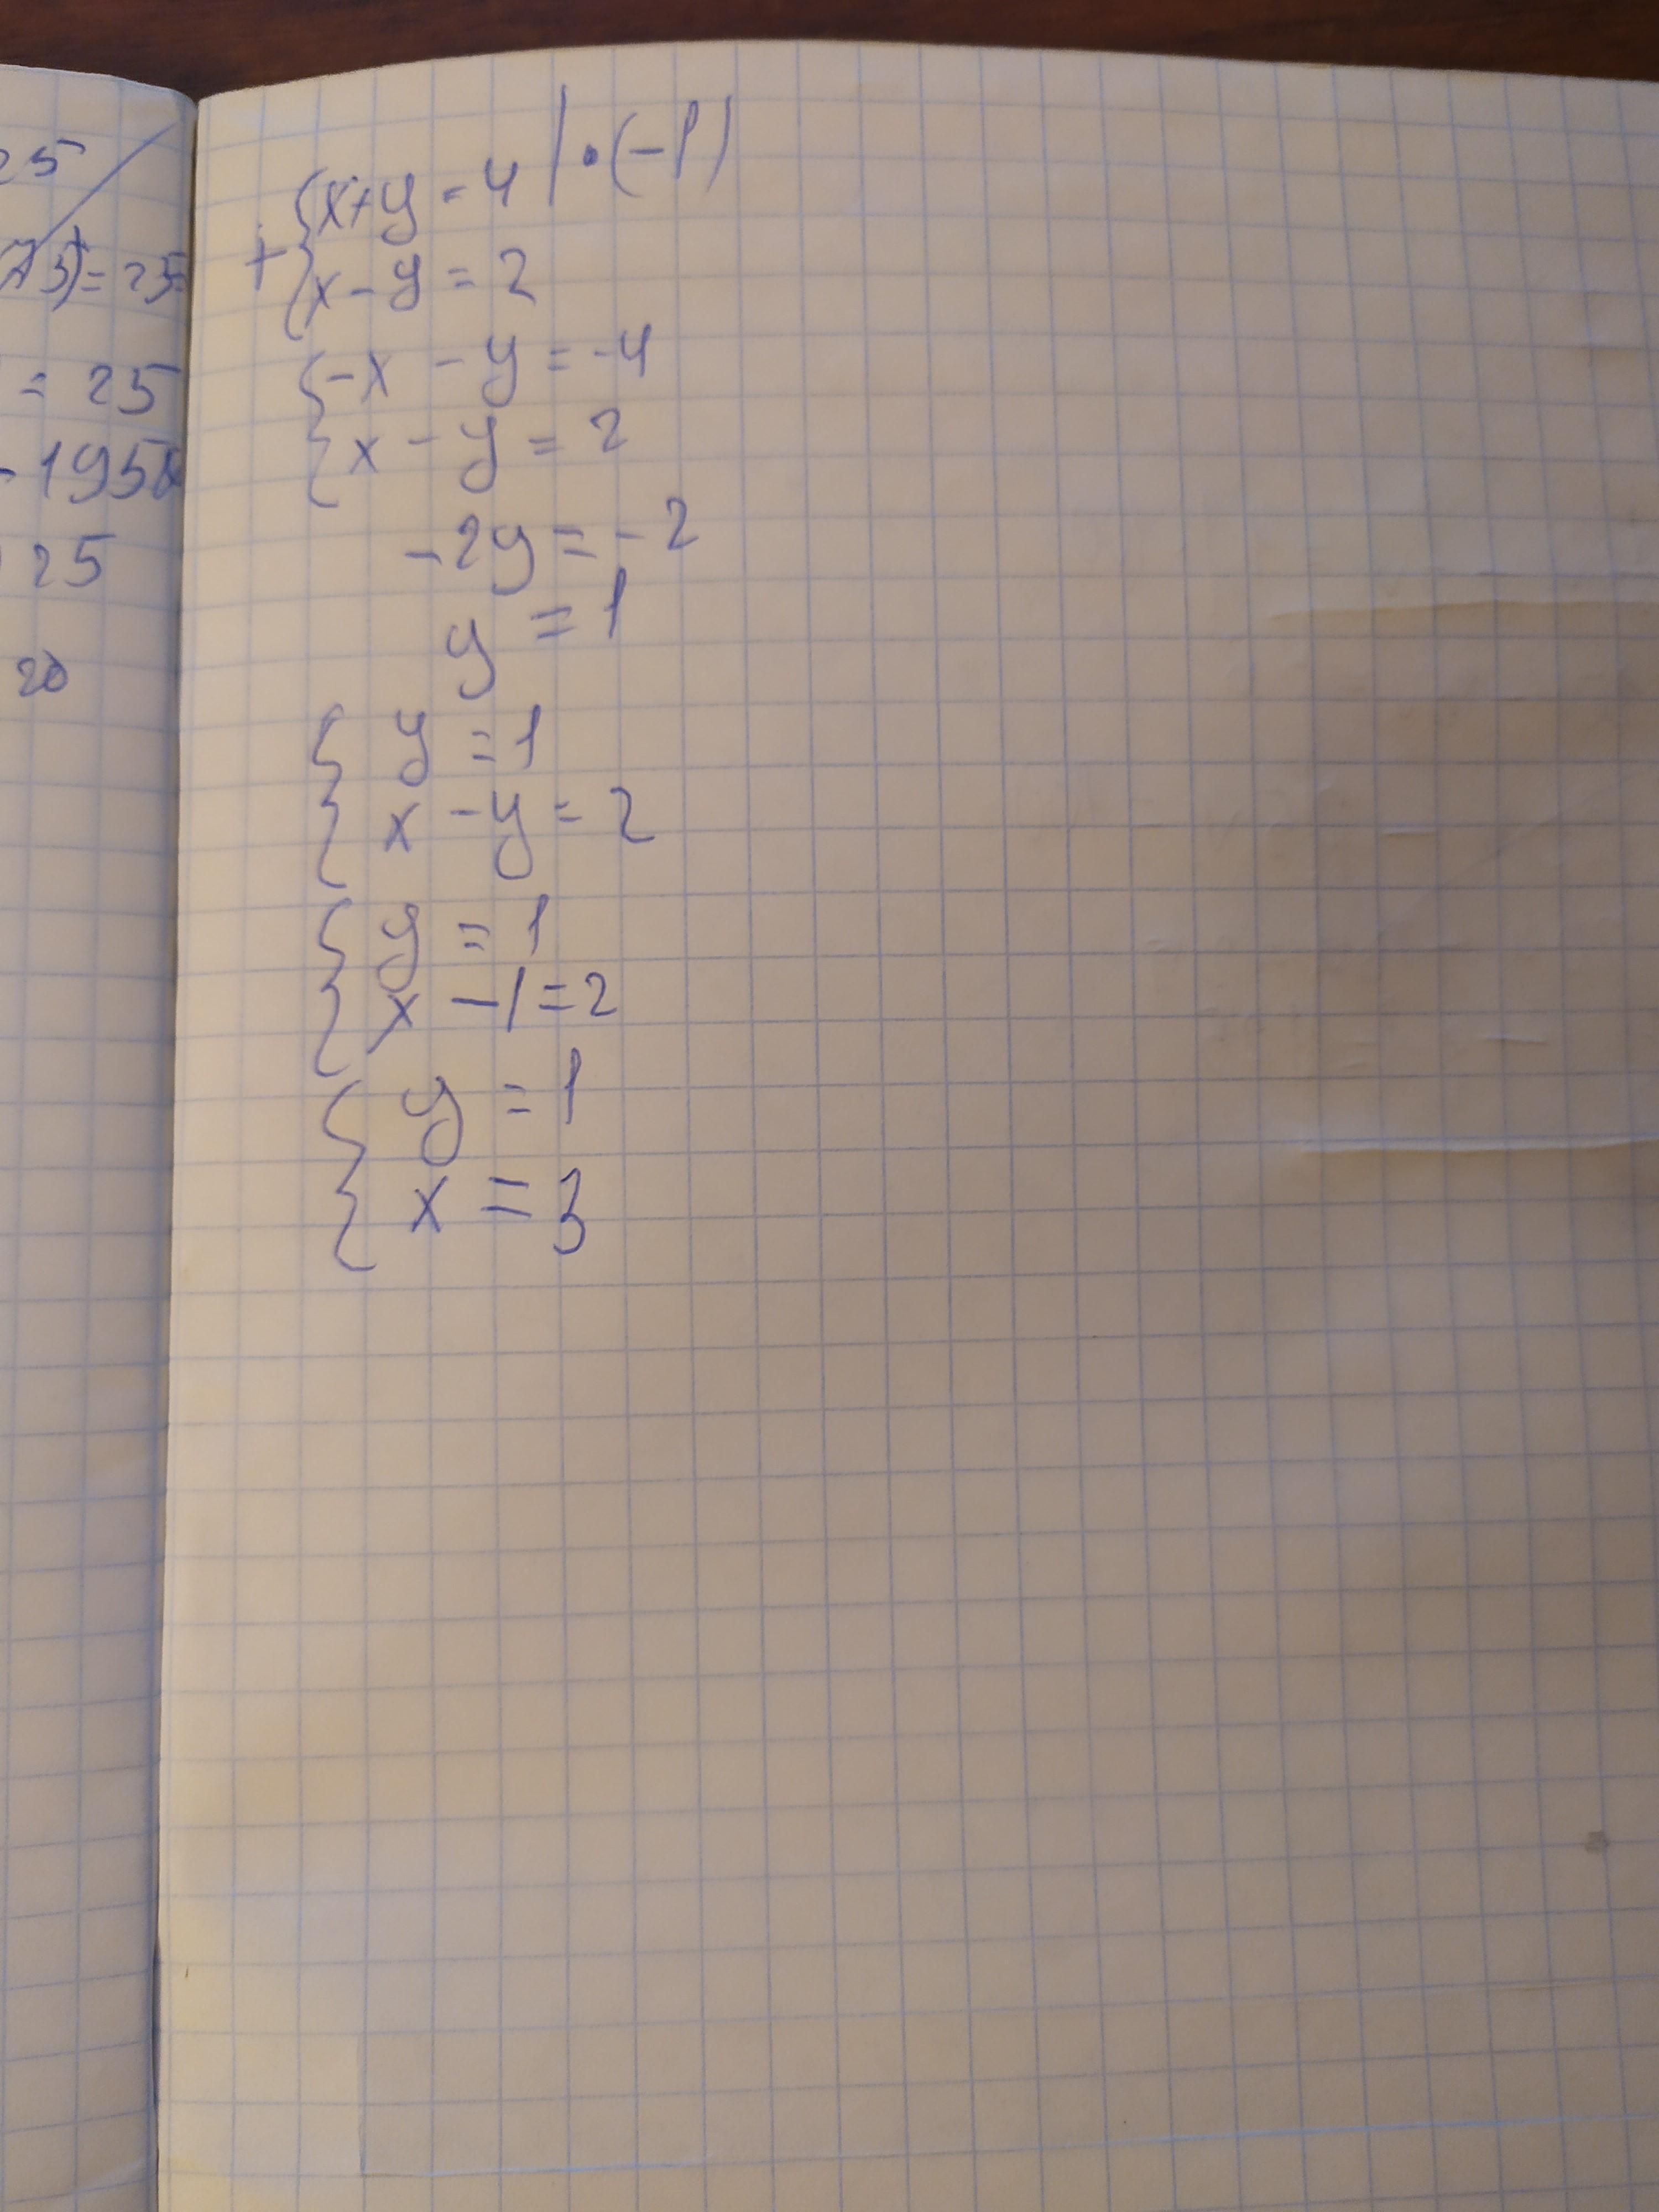 25
3)=25
= 25
- 195
25
20
{x+y=4 | •(-1)
+
{x-y=2
{-x-y=-4
{x-y=2
-2y=-2
y=1
{y=1
{x-y=2
{y=1
{x-1=2
{y=1
{x=3